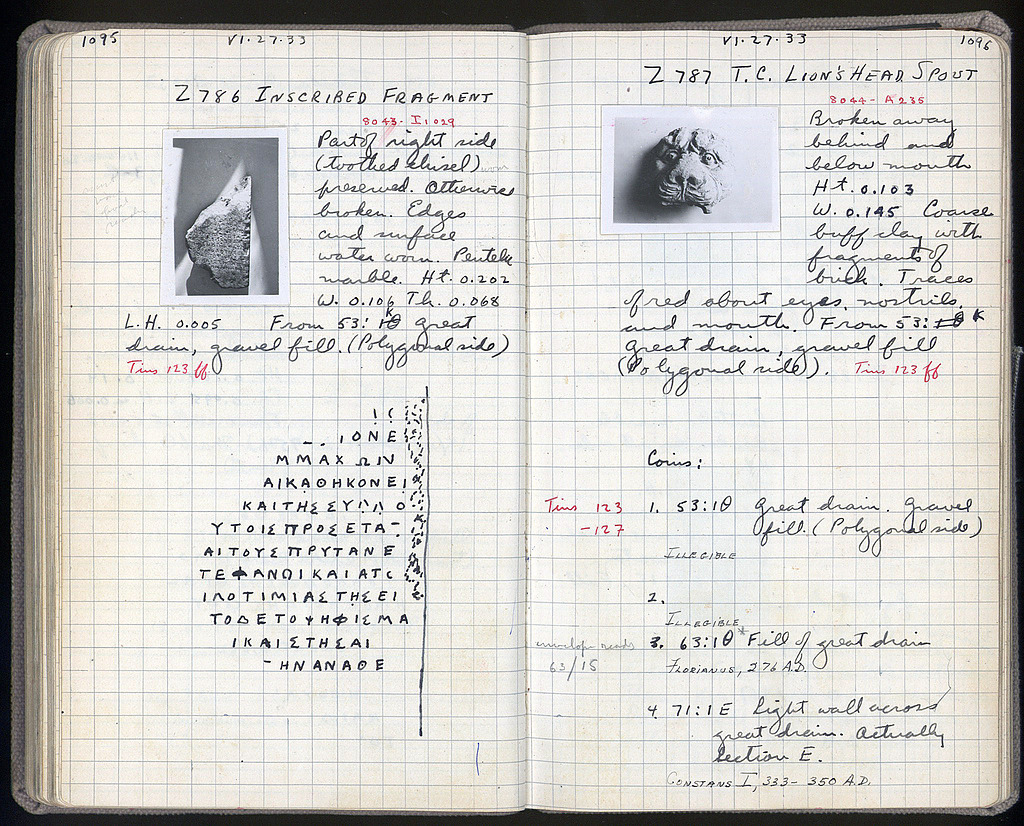 1095
VI·27·33
Z 786 INSCRIBED FRAGMENT
8043- I 1029
Part of right side
(toothed chisel)
preserved. Otherwise
broken. Edges
and surface
water worn. Pentelic
marble. Ht. 0.202
W. 0.106 Th. 0.068
L.H. 0.005 From 53: ΙΘ great
drain, gravel fill. (Polygonal side)
Tins 123 ff
ΙΟΝΕ
ΜΜΑΧΩΝ
ΑΙΚΑΘΗΚΟΝΕΙ
ΚΑΙΤΗΣΣΥ
ΥΤΟΙΣΠΡΟΣΕΤΑ
ΑΙΤΟΥΣΠΡΥΤΑΝΕ
ΤΕΦΑΝΩΙΚΑΙΑΤ
ΙΛΟΤΙΜΙΑΣΤΗΣΕΙ
ΤΟΔΕΤΟΨΗΦΙΣΜΑ
ΙΚΑΙΣΤΗΣΑΙ
ΗΝΑΝΑΘΕ
VI·27·33
1096
Z 787 T.C. LION'S HEAD SPOUT
8044- A 235
Broken away
behind and
below mouth
Ht. 0.103
W. 0.145 Coarse
buff clay with
fragments of
brick. Traces
of red about eyes, nostrils,
and mouth. From 53: K
great drain, gravel fill
(Polygonal side). Tins 123 ff
Coins:
Tins 123
-127
1. 53:ΙΘ Great drain. Gravel
fill. (Polygonal side)
ILLEGIBLE
2.
ILLEGIBLE
envelope reads
63/15
3. 63:ΙΘ* Fill of great drain
FLORIANUS, 276 A.D.
4. 71:1 E Light wall across
great drain. Actually
Section E.
CONSTANS I, 333- 350 A.D.